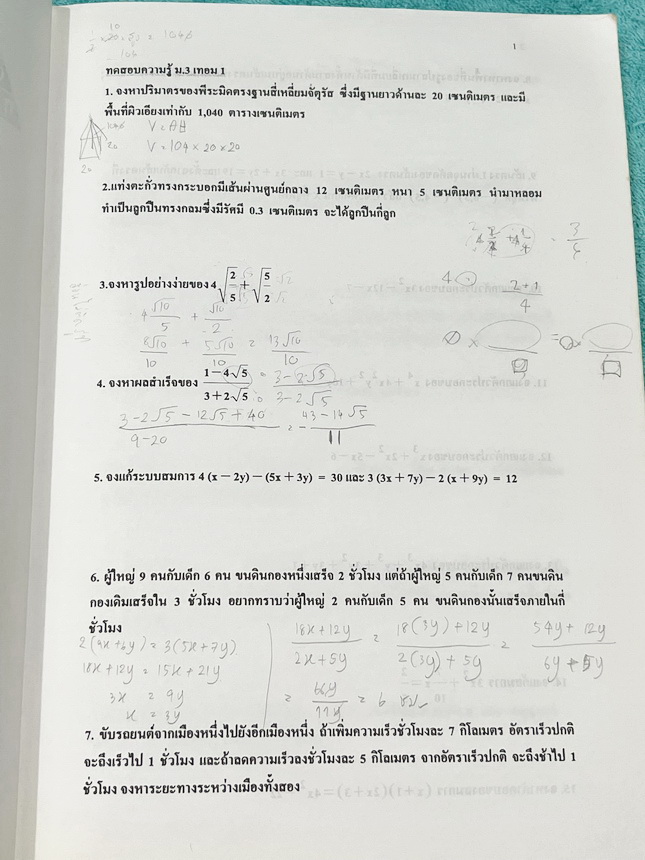 1
ทดสอบความรู้ ม.3 เทอม 1
1. จงหาปริมาตรของพีระมิดตรงฐานสี่เหลี่ยมจัตุรัส ซึ่งมีฐานยาวด้านละ 20 เซนติเมตร และมี
พื้นที่ผิวเอียงเท่ากับ 1,040 ตารางเซนติเมตร
V = AH
V = 104 × 20 × 20
20
2.แท่งตะกั่วทรงกระบอกมีเส้นผ่านศูนย์กลาง 12 เซนติเมตร หนา 5 เซนติเมตร นำมาหลอม
ทำเป็นลูกปืนทรงกลมซึ่งมีรัศมี 0.3 เซนติเมตร จะได้ลูกปืนกี่ลูก
3.จงหารูปอย่างง่ายของ 4√(2/5) + √(5/2)
4 √10/5 + √10/2
8√10/10 + 5√10/10 = 13√10/10
4. จงหาผลสำเร็จของ (1 − 4√5)/(3 + 2√5) (3 − 2√5)/(3 − 2√5)
(3 − 2√5 − 12√5 + 40)/(9 − 20) = − (43 − 14√5)/11
5. จงแก้ระบบสมการ 4 (x − 2y) − (5x + 3y) = 30 และ 3 (3x + 7y) − 2 (x + 9y) = 12
6. ผู้ใหญ่ 9 คนกับเด็ก 6 คน ขนดินกองหนึ่งเสร็จ 2 ชั่วโมง แต่ถ้าผู้ใหญ่ 5 คนกับเด็ก 7 คนขนดิน
กองเดิมเสร็จใน 3 ชั่วโมง อยากทราบว่าผู้ใหญ่ 2 คนกับเด็ก 5 คน ขนดินกองนั้นเสร็จภายในกี่
ชั่วโมง
2(9x + 6y) = 3(5x + 7y)
18x + 12y = 15x + 21y
3x = 9y
x = 3y
(18x + 12y)/(2x + 5y) = (18(3y) + 12y)/(2(3y) + 5y) = (54y + 12y)/(6y + 5y)
= 66y/11y = 6 ชม.
7. ขับรถยนต์จากเมืองหนึ่งไปยังอีกเมืองหนึ่ง ถ้าเพิ่มความเร็วชั่วโมงละ 7 กิโลเมตร อัตราเร็วปกติ
จะถึงเร็วไป 1 ชั่วโมง และถ้าลดความเร็วลงชั่วโมงละ 5 กิโลเมตร จากอัตราเร็วปกติ จะถึงช้าไป 1
ชั่วโมง จงหาระยะทางระหว่างเมืองทั้งสอง